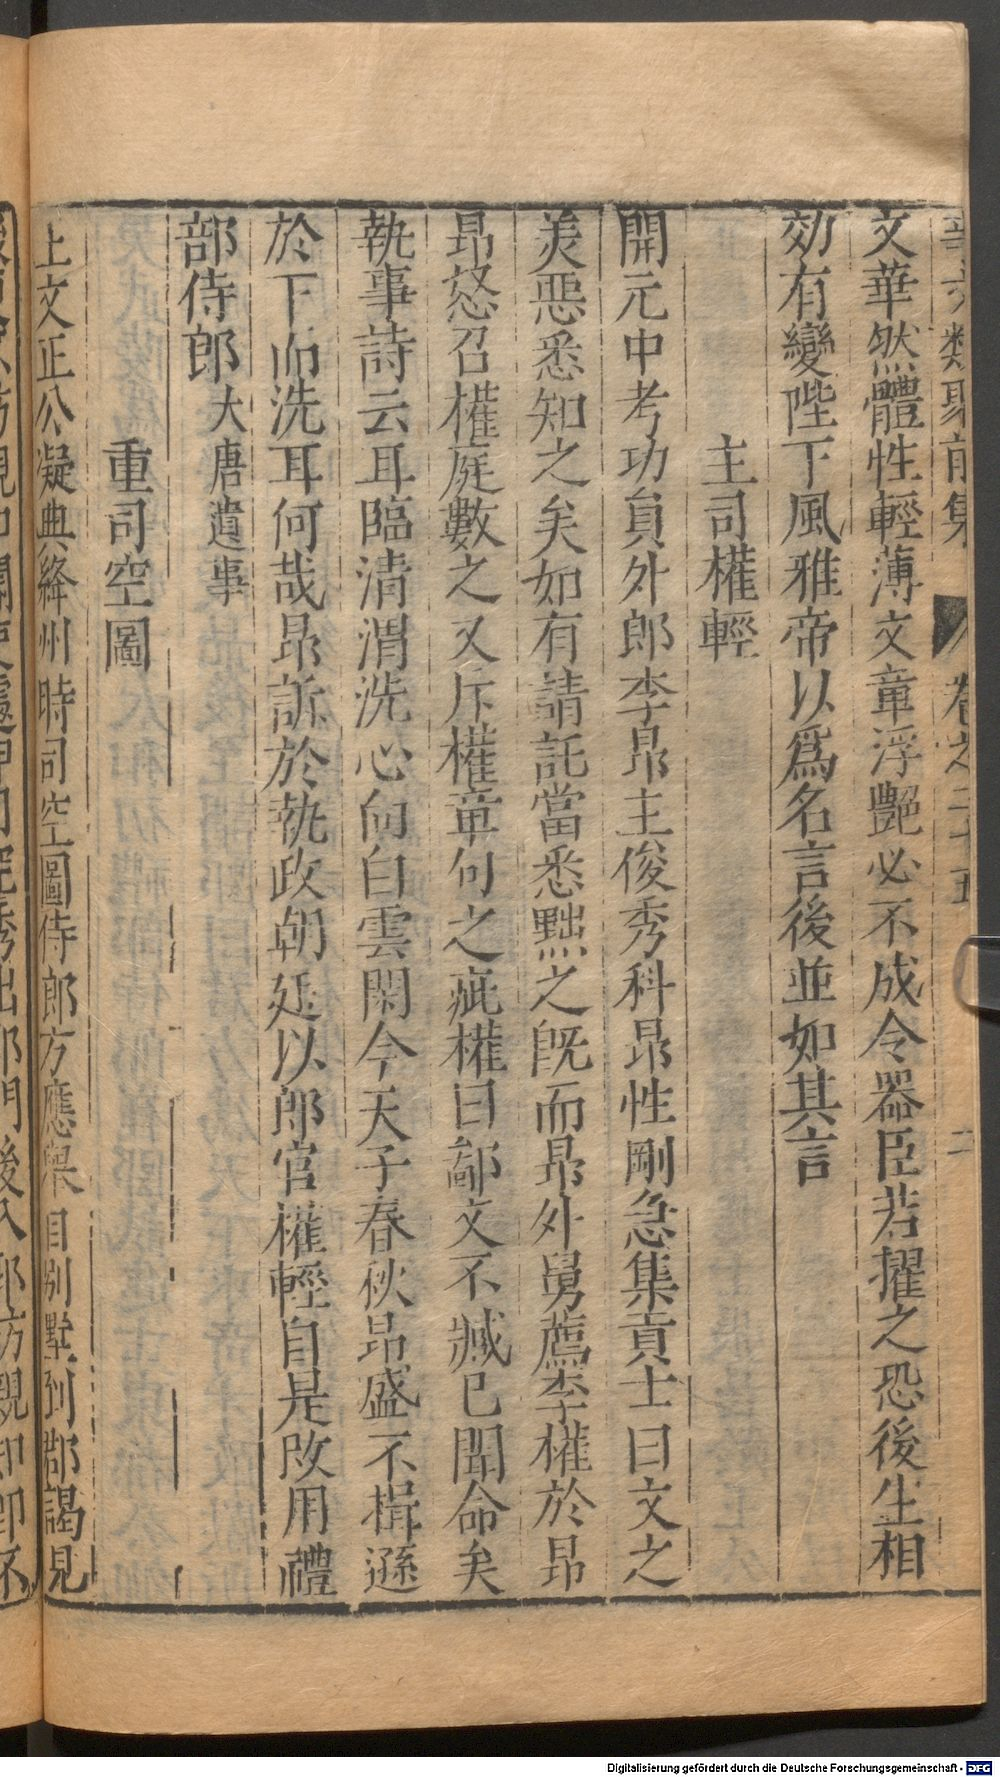 事文類聚前集　卷之二十五　二
文華然體性輕薄文章浮艷必不成令器臣若擢之恐後生相
効有變陛下風雅帝以爲名言後並如其言
主司權輕
開元中考功員外郎李昂主俊秀科昂性剛急集貢士曰文之
美惡悉知之矣如有請託當悉黜之旣而昂外舅薦李權於昂
昂怒召權庭數之又斥權章句之疵權曰鄙文不臧已聞命矣
執事詩云耳臨清渭洗心向白雲閑今天子春秋昂盛不揖遜
於下而洗耳何哉昂訴於執政朝廷以郎官權輕自是改用禮
部侍郎大唐遺事
重司空圖
王文正公凝典絳州時司空圖侍郎方應舉自別墅到郡謁見
Digitalisierung gefördert durch die Deutsche Forschungsgemeinschaft - DFG